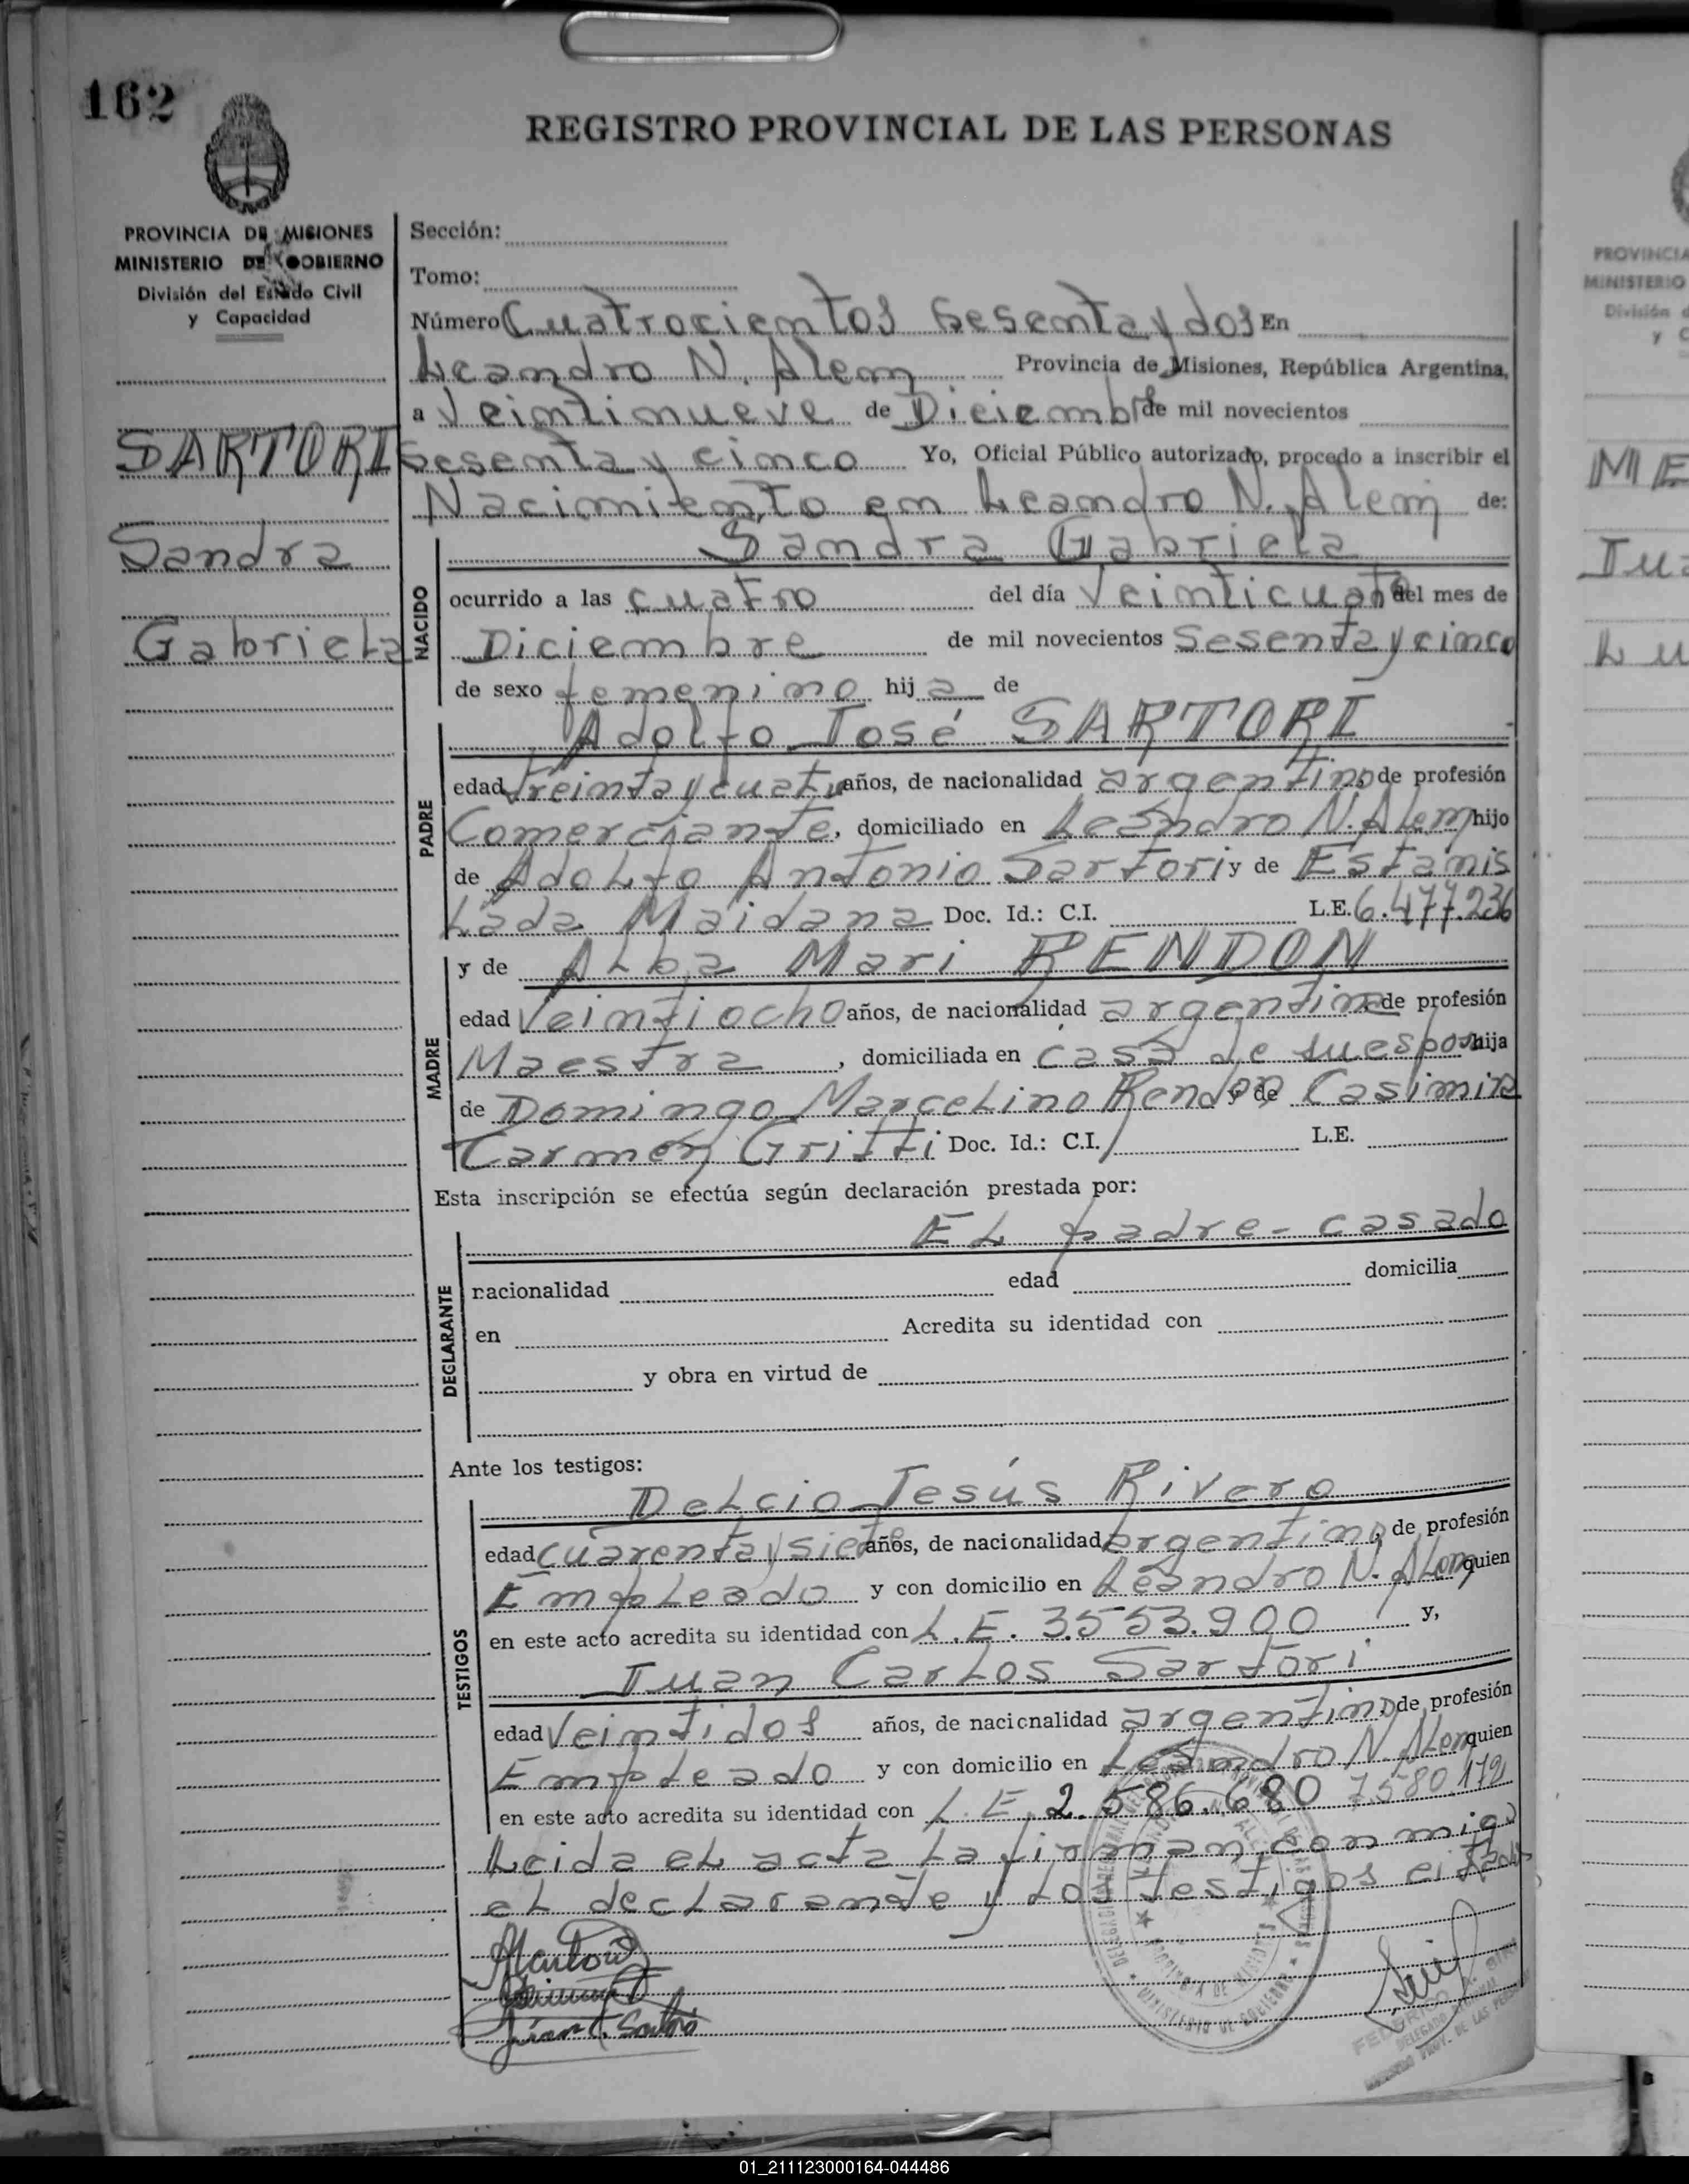 162
REGISTRO PROVINCIAL DE LAS PERSONAS
PROVINCIA DE MISIONES
MINISTERIO DE GOBIERNO
División del Estado Civil
y Capacidad
SARTORI
Sandra
Gabriela
Sección:
Tomo:
Número Cuatrocientos Sesenta y dos En
Leandro N. Alem Provincia de Misiones, República Argentina,
a Veintinueve de Diciembre de mil novecientos
Sesenta y cinco Yo, Oficial Público autorizado, procedo a inscribir el
Nacimiento en Leandro N. Alem de:
NACIDO
Sandra Gabriela
ocurrido a las cuatro del día Veinticuatro del mes de
Diciembre de mil novecientos Sesenta y cinco
de sexo femenino hija de
PADRE
Adolfo José SARTORI
edad treinta y cuatro años, de nacionalidad argentino de profesión
Comerciante, domiciliado en Leandro N. Alem hijo
de Adolfo Antonio Sartori y de Estanis
lada Maidana Doc. Id.: C.I. L.E. 6.477.236
MADRE
y de Alba Mari RENDON
edad Veintiocho años, de nacionalidad argentina de profesión
Maestra, domiciliada en casa de su esposo hija
de Domingo Marcelino Rendon y de Casimira
Carmen Gritti Doc. Id.: C.I. L.E.
Esta inscripción se efectúa según declaración prestada por:
DECLARANTE
El padre - casado
nacionalidad edad domicilia
en Acredita su identidad con
y obra en virtud de
Ante los testigos:
TESTIGOS
Delcio Jesús Rivero
edad cuarenta y siete años, de nacionalidad argentino, de profesión
Empleado y con domicilio en Leandro N. Alem quien
en este acto acredita su identidad con L.E. 3.553.900 y,
Juan Carlos Sartori
edad Veintidos años, de nacionalidad argentino de profesión
Empleado y con domicilio en Leandro N. Alem quien
en este acto acredita su identidad con L.E. 2.586.680 7.580.172
Leida el acta la firman conmigo
el declarante y los testigos citados
Juan C. Sartori
PROVINCIA
MINISTERIO
División d
y C
ME
Jua
Lu
01_211123000164-044486